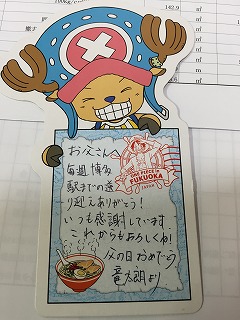 142.9
お父さんへ
毎週博多
駅までの送
り迎えありがとう!
いつも感謝しています
これからもよろしくね!
父の日おめでとう
竜太郎より
ONE PIECE
FUKUOKA
JAPAN